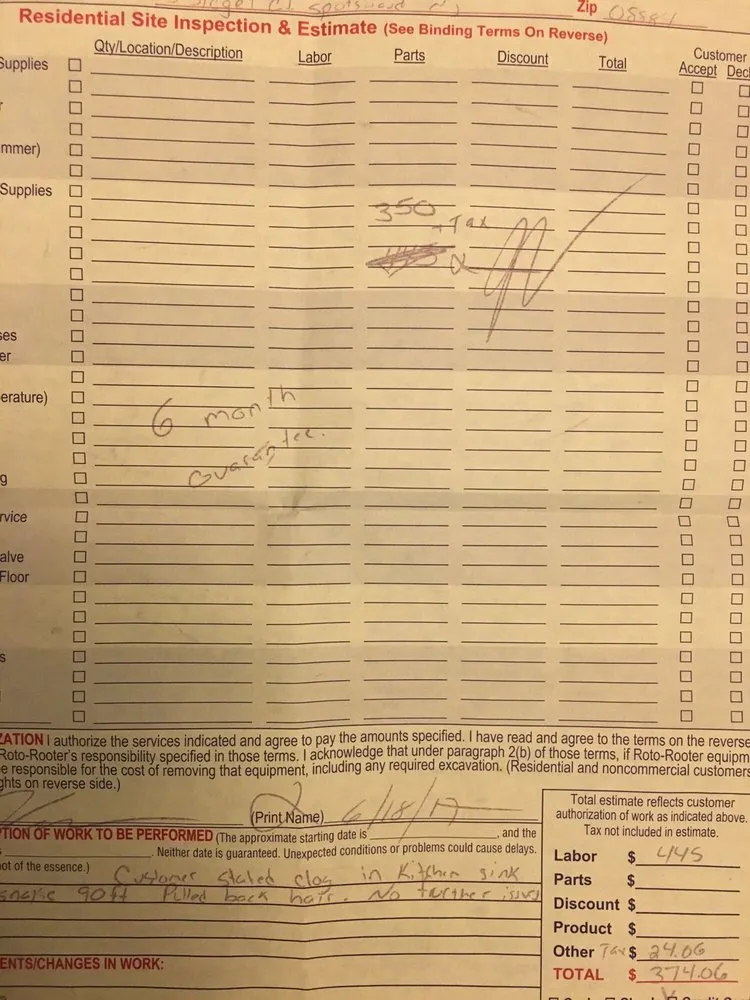 Zip
Residential Site Inspection & Estimate (See Binding Terms On Reverse)
Qty/Location/Description Labor Parts Discount Total Customer
Accept Decl
Supplies
mmer)
Supplies
350
+Tax
6 month
Guarantee.
ses
er
erature)
g
rvice
alve
Floor
s
ZATION I authorize the services indicated and agree to pay the amounts specified. I have read and agree to the terms on the reverse
Roto-Rooter's responsibility specified in those terms. I acknowledge that under paragraph 2(b) of those terms, if Roto-Rooter equipm
e responsible for the cost of removing that equipment, including any required excavation. (Residential and noncommercial customers
ghts on reverse side.)
(Print Name) 6/18/17
TION OF WORK TO BE PERFORMED (The approximate starting date is , and the
. Neither date is guaranteed. Unexpected conditions or problems could cause delays.
not of the essence.) Customer stated clog in Kitchen sink
snake 90ft Pulled back hair. No further issues
ENTS/CHANGES IN WORK:
Total estimate reflects customer
authorization of work as indicated above.
Tax not included in estimate.
Labor $ 445
Parts $
Discount $
Product $
Other Tax $ 24.06
TOTAL $ 374.06